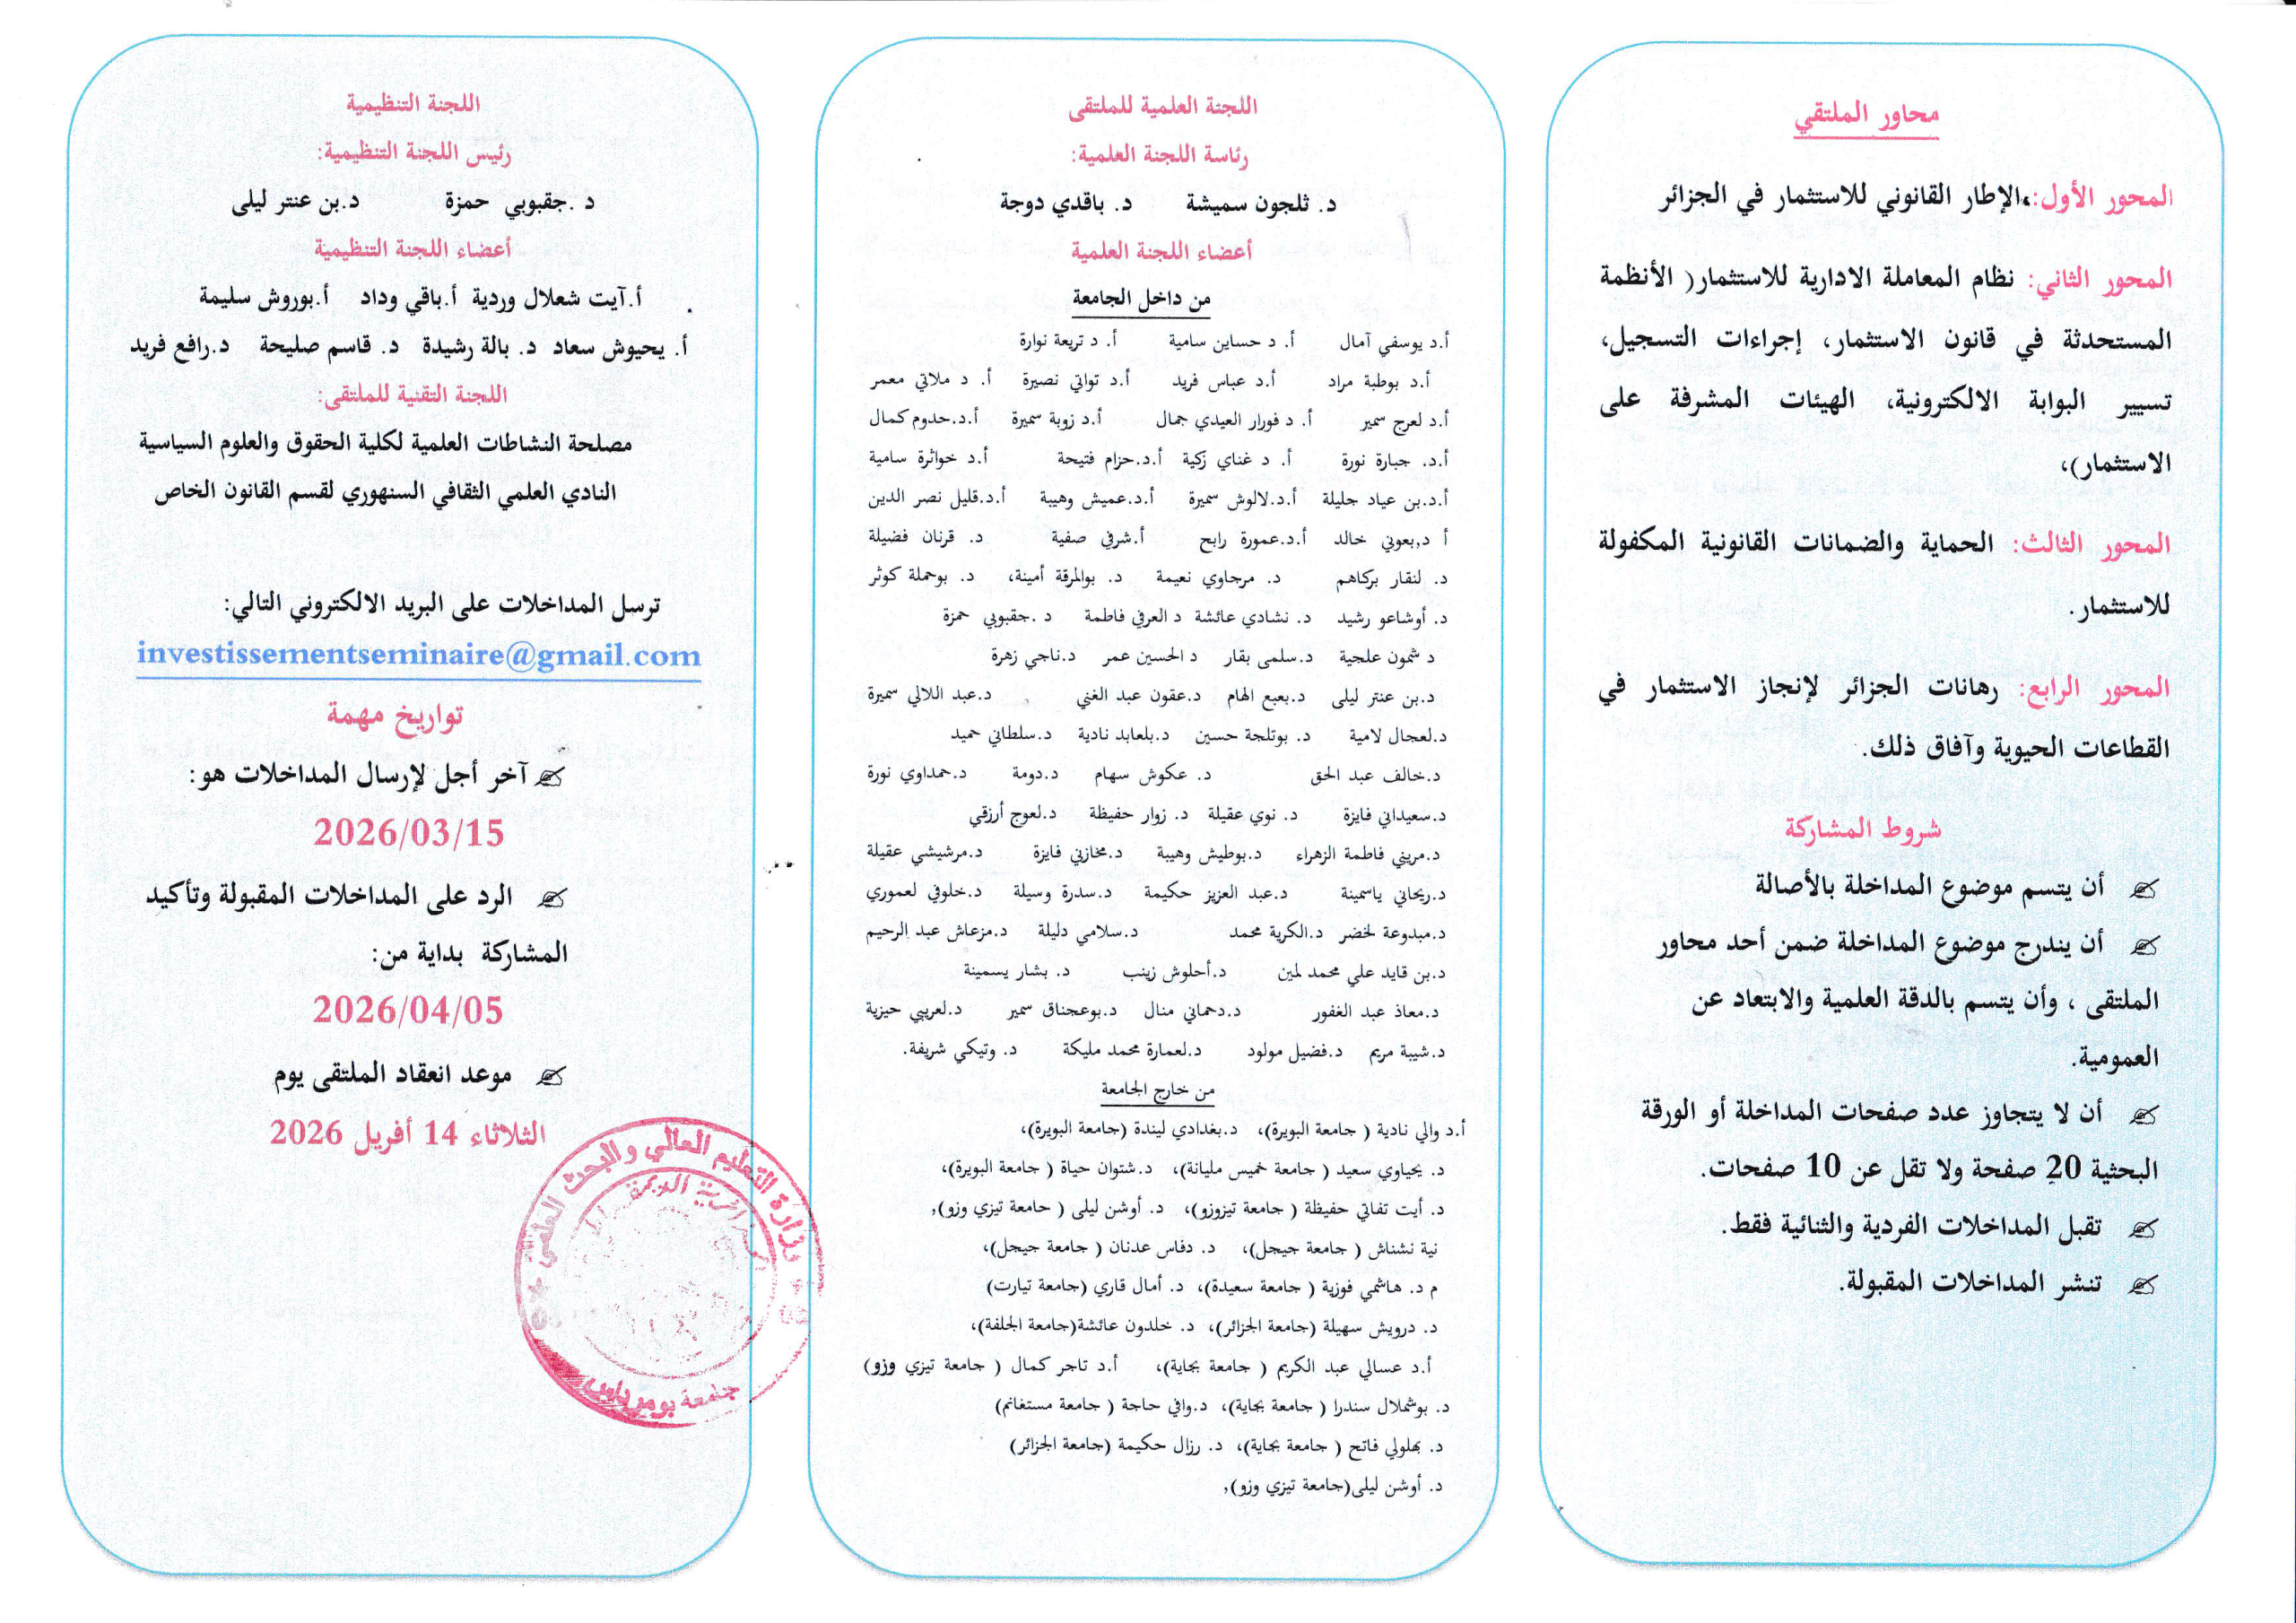 محاور الملتقي
المحور الأول:،الإطار القانوني للاستثمار في الجزائر
المحور الثاني: نظام المعاملة الادارية للاستثمار( الأنظمة
المستحدثة في قانون الاستثمار، إجراءات التسجيل،
تسيير البوابة الالكترونية، الهيئات المشرفة على
الاستثمار)،
المحور الثالث: الحماية والضمانات القانونية المكفولة
للاستثمار.
المحور الرابع: رهانات الجزائر لإنجاز الاستثمار في
القطاعات الحيوية وآفاق ذلك.
شروط المشاركة
أن يتسم موضوع المداخلة بالأصالة
أن يندرج موضوع المداخلة ضمن أحد محاور
الملتقى ، وأن يتسم بالدقة العلمية والابتعاد عن
العمومية.
أن لا يتجاوز عدد صفحات المداخلة أو الورقة
البحثية 20 صفحة ولا تقل عن 10 صفحات.
تقبل المداخلات الفردية والثنائية فقط.
تنشر المداخلات المقبولة.
اللجنة العلمية للملتقى
رئاسة اللجنة العلمية:
د. ثلجون سميشة د. باقدي دوجة
أعضاء اللجنة العلمية
من داخل الجامعة
أ.د يوسفي آمال أ. د حساين سامية أ. د تريعة نوارة
أ.د بوطبة مراد أ.د عباس فريد أ.د تواتي نصيرة أ. د ملاتي معمر
أ.د لعرج سمير أ. د فورار العيدي جمال أ.د زوبة سميرة أ.د.حدوم كمال
أ.د. جبارة نورة أ. د غناي زكية أ.د.حزام فتيحة أ.د خواثرة سامية
أ.د.بن عياد جليلة أ.د.لالوش سميرة أ.د.عميش وهيبة أ.د.قليل نصر الدين
أ د,بعوني خالد أ.د.عمورة رابح أ.شرفي صفية د. قرنان فضيلة
د. لنقار بركاهم د. مرجاوي نعيمة د. بوالمرقة أمينة، د. بوحملة كوثر
د. أوشاعو رشيد د. نشادي عائشة د العرفي فاطمة د .جقبوبي حمزة
د شمون علجية د.سلمى بقار د الحسين عمر د.ناجي زهرة
د.بن عنتر ليلى د.بعيع الهام د.عقون عبد الغني د.عبد اللالي سميرة
د.لعجال لامية د. بوتلجة حسين د.بلعابد نادية د.سلطاني حميد
د.خالف عبد الحق د. عكوش سهام د.دومة د.حمداوي نورة
د.سعيداني فايزة د. نوي عقيلة د. زوار حفيظة د.لعوج أرزقي
د.مريني فاطمة الزهراء د.بوطيش وهيبة د.مخازني فايزة د.مرشيشي عقيلة
د.ريحاني ياسمينة د.عبد العزيز حكيمة د.سدرة وسيلة د.خلوفي لعموري
د.مبدوعة لخضر د.الكرية محمد د.سلامي دليلة د.مزعاش عبد الرحيم
د.بن قايد علي محمد لمين د.أحلوش زينب د. بشار يسمينة
د.معاذ عبد الغفور د.دحماني منال د.بوعجناق سمير د.لعريبي حيزية
د.شيبة مريم د.فضيل مولود د.لعمارة محمد مليكة د. وتيكي شريفة.
من خارج الجامعة
أ.د والي نادية ( جامعة البويرة)، د.بغدادي ليندة (جامعة البويرة)،
د. يحياوي سعيد ( جامعة خميس مليانة)، د.شتوان حياة ( جامعة البويرة)،
د. أيت تفاتي حفيظة ( جامعة تيزوزو)، د. أوشن ليلى ( جامعة تيزي وزو),
نية نشناش ( جامعة جيجل)، د. دفاس عدنان ( جامعة جيجل)،
م د. هاشمي فوزية ( جامعة سعيدة)، د. أمال قاري (جامعة تيارت)
د. درويش سهيلة (جامعة الجزائر)، د. خلدون عائشة(جامعة الجلفة)،
أ.د عسالي عبد الكريم ( جامعة بجاية)، أ.د تاجر كمال ( جامعة تيزي وزو)
د. بوشملال سندرا ( جامعة بجاية)، د.وافي حاجة ( جامعة مستغانم)
د. بهلولي فاتح ( جامعة بجاية)، د. رزال حكيمة (جامعة الجزائر)
د. أوشن ليلى(جامعة تيزي وزو),
اللجنة التنظيمية
رئيس اللجنة التنظيمية:
د .جقبوبي حمزة د.بن عنتر ليلى
أعضاء اللجنة التنظيمية
أ.آيت شعلال وردية أ.باقي وداد أ.بوروش سليمة
أ. يحيوش سعاد د. بالة رشيدة د. قاسم صليحة د.رافع فريد
اللجنة التقنية للملتقى:
مصلحة النشاطات العلمية لكلية الحقوق والعلوم السياسية
النادي العلمي الثقافي السنهوري لقسم القانون الخاص
ترسل المداخلات على البريد الالكتروني التالي:
investissementseminaire@gmail.com
تواريخ مهمة
آخر أجل لإرسال المداخلات هو:
2026/03/15
الرد على المداخلات المقبولة وتأكيد
المشاركة بداية من:
2026/04/05
موعد انعقاد الملتقى يوم
الثلاثاء 14 أفريل 2026
وزارة التعليم العالي والبحث العلمي
جامعة بومرداس